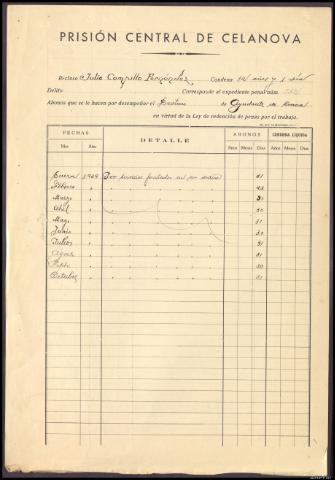 PRISIÓN CENTRAL DE CELANOVA
Recluso Julio Campillo Condena 12 años y 1 día
Delito Corresponde al expediente penal núm.
Abonos que se le hacen por desempeñar el Destino de Ayudante de
en virtud de la Ley de redención de penas por el trabajo.
FECHAS DETALLE ABONOS CONDENA LÍQUIDA
Mes Año Años Meses Días Años Meses Días
Enero Por servicios prestados en su
Febrero " "
Marzo " " 31
Abril " " 30
Mayo " " 31
Junio " "
Julio " " 31
Agos. " " 31
Sepbre " " 30
Octubre " " 31